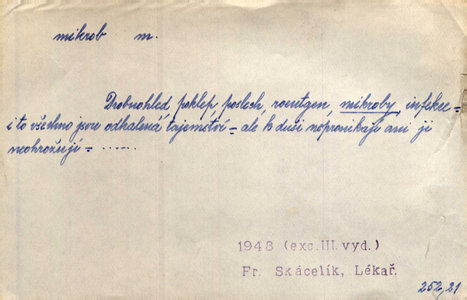 mikrob m.
Drobnohled, poklep, poslech, roentgen, mikroby, infekce -
i to všechno jsou odhalená tajemství - ale k duši nepronikají ani ji
neohrožují - .....
1948 (exc. III. vyd.)
Fr. Skácelík, Lékař.
252,21